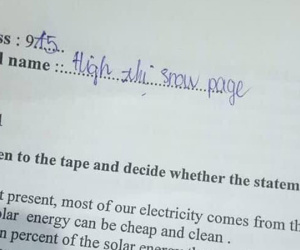 ss : 9A5
l name : High shi snow page
en to the tape and decide whether the statem
t present, most of our electricity comes from th
lar energy can be cheap and clean .
n percent of the solar energy th